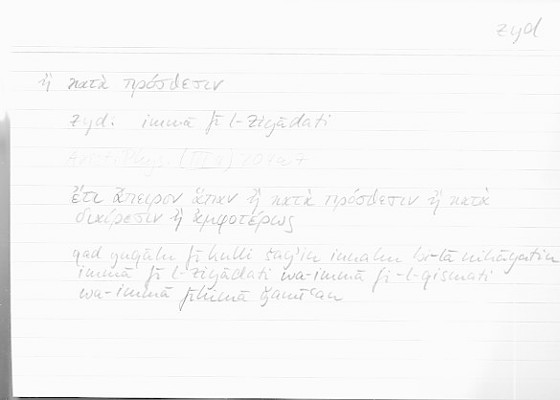 zyd
ἢ κατὰ πρόσθεσιν
zyd. immā fī l-ziyādati
Arist. Phys. (III 4) 204a7
ἔτι ἄπειρον ἅπαν ἢ κατὰ πρόσθεσιν ἢ κατὰ
διαίρεσιν ἢ ἀμφοτέρως
qad yuqālu fī kulli šay'in innahu bi-lā nihāyatin
immā fī l-ziyādati wa-immā fī-l-qismati
wa-immā fīhimā ǧamīʿan